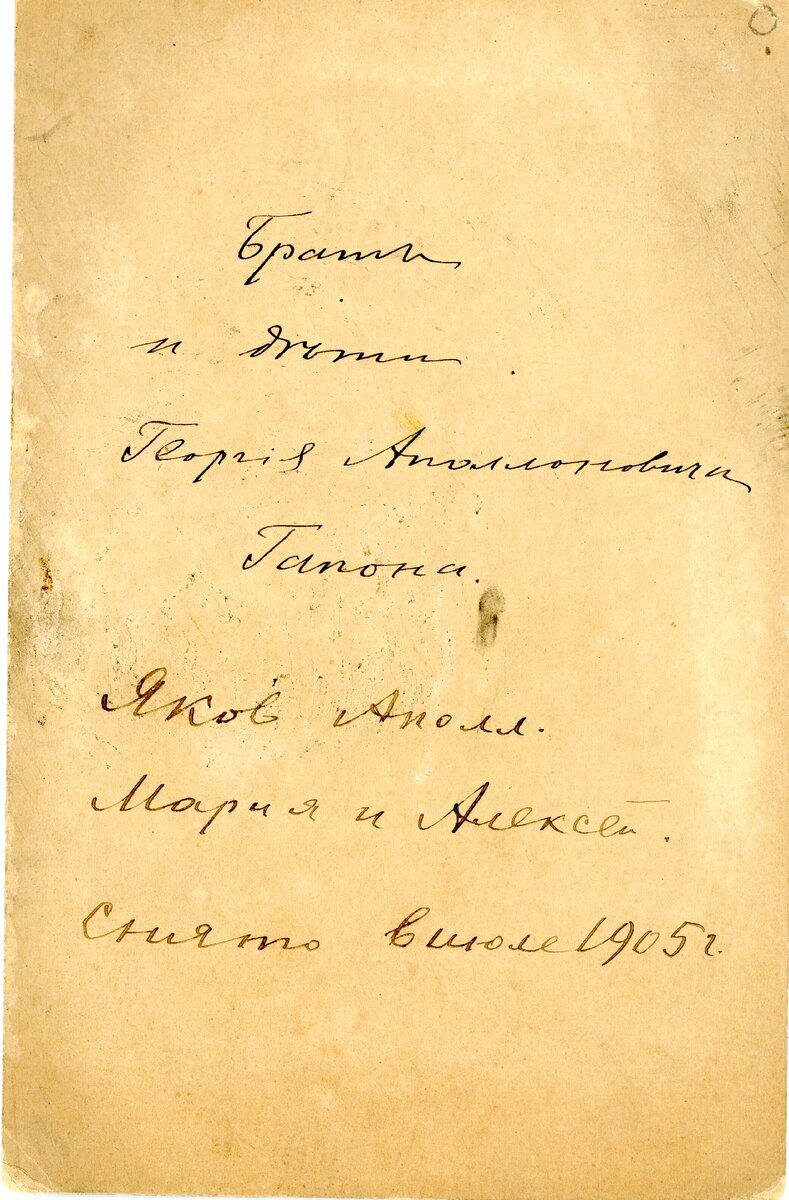 Братъ
и дѣти.
Георгія Аполлоновича
Гапона.
Яков Аполл.
Мария и Алексей.
Снято в июле 1905 г.